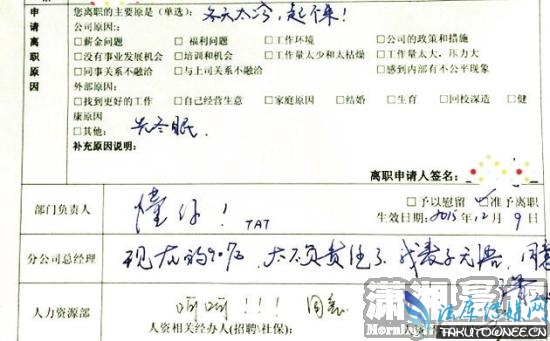 申请离职原因
您离职的主要原是(单选): 冬天太冷,起不来!
公司原因:
□薪金问题 □福利问题 □工作环境 □公司的政策和措施
□没有事业发展机会 □培训和机会 □工作量太少和太枯燥 □工作量太大,压力大
□同事关系不融洽 □与上司关系不融洽 □感到内部有不公平现象
外部原因:
□找到更好的工作 □自己经营生意 □家庭原因 □结婚 □生育 □回校深造 □健
康原因
□其他: 先冬眠.
补充原因说明:
离职申请人签名:
部门负责人 懂你! TAT
□予以慰留 准予离职
生效日期: 2015年12月9日
分公司总经理 现在的90后,太不负责任了.我表示无语,同意
人力资源部 呵呵!!! 同意
人资相关经办人(招聘\社保): 人资
潇湘晨报
Morni
法库传媒网
TAKUTOONEE.CN